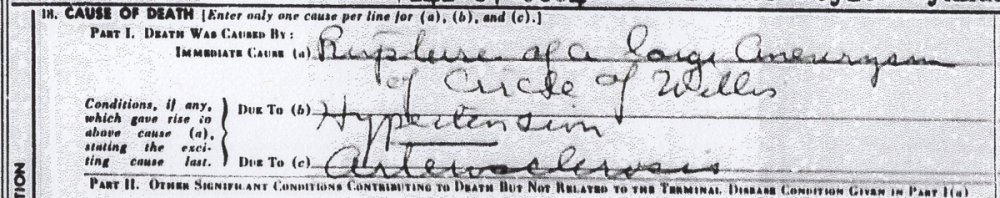 18. CAUSE OF DEATH [Enter only one cause per line for (a), (b), and (c).]
PART I. DEATH WAS CAUSED BY:
IMMEDIATE CAUSE (a) Rupture of a large Aneurysm
of Circle of Willis
Conditions, if any, which gave rise to above cause (a), stating the exciting cause last.
DUE TO (b) Hypertension
DUE TO (c) Arteriosclerosis
PART II. OTHER SIGNIFICANT CONDITIONS CONTRIBUTING TO DEATH BUT NOT RELATED TO THE TERMINAL DISEASE CONDITION GIVEN IN PART I(a)
TION